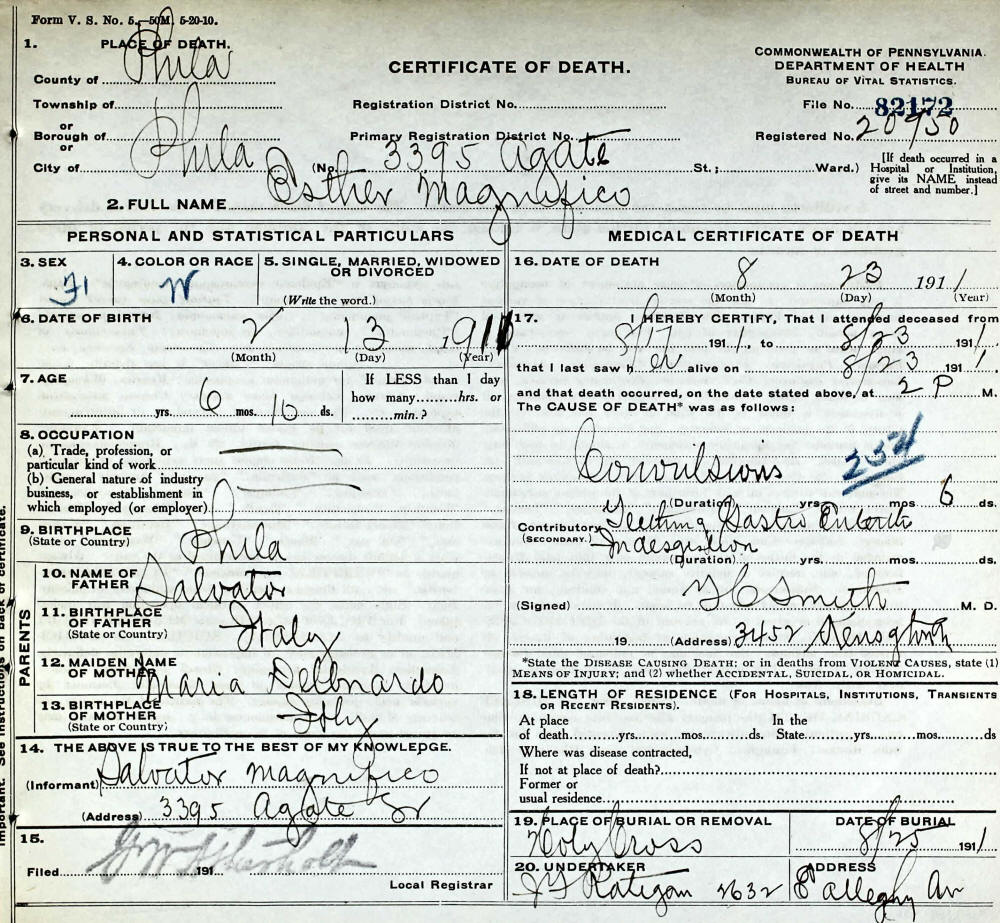 Form V. S. No. 5.—50M. 5-20-10.
1. PLACE OF DEATH.
County of Phila
Township of
or
Borough of
or
City of Phila
CERTIFICATE OF DEATH.
Registration District No.
Primary Registration District No.
(No. 3395 Agate St.; Ward.)
COMMONWEALTH OF PENNSYLVANIA.
DEPARTMENT OF HEALTH
BUREAU OF VITAL STATISTICS.
File No. 82172
Registered No. 20750
[If death occurred in a
Hospital or Institution,
give its NAME instead
of street and number.]
2. FULL NAME Esther Magnifico
PERSONAL AND STATISTICAL PARTICULARS
3. SEX
F
4. COLOR OR RACE
W
5. SINGLE, MARRIED, WIDOWED
OR DIVORCED
(Write the word.)
6. DATE OF BIRTH
2 13 1911
(Month) (Day) (Year)
7. AGE
yrs. 6 mos. 10 ds.
If LESS than 1 day
how many hrs. or
min.?
8. OCCUPATION
(a) Trade, profession, or
particular kind of work
(b) General nature of industry
business, or establishment in
which employed (or employer)
9. BIRTHPLACE
(State or Country)
Phila
PARENTS
10. NAME OF
FATHER Salvator
11. BIRTHPLACE
OF FATHER
(State or Country) Italy
12. MAIDEN NAME
OF MOTHER Maria Delbnardo
13. BIRTHPLACE
OF MOTHER
(State or Country) Itly
14. THE ABOVE IS TRUE TO THE BEST OF MY KNOWLEDGE.
(Informant) Salvator Magnifico
(Address) 3395 Agate St
15.
Filed 191
Local Registrar
MEDICAL CERTIFICATE OF DEATH
16. DATE OF DEATH
8 23 1911
(Month) (Day) (Year)
17. I HEREBY CERTIFY, That I attended deceased from
8/17 1911, to 8/23 1911.
that I last saw h er alive on 8/23 1911.
and that death occurred, on the date stated above, at 2 P M.
The CAUSE OF DEATH* was as follows:
Convulsions
(Duration) yrs. mos. 6 ds.
Contributory Teething Gastro
(SECONDARY.) Indesgistion
(Duration) yrs. mos. ds.
(Signed) Smith M. D.
19 (Address) 3452
*State the DISEASE CAUSING DEATH; or in deaths from VIOLENT CAUSES, state (1)
MEANS OF INJURY; and (2) whether ACCIDENTAL, SUICIDAL, OR HOMICIDAL.
18. LENGTH OF RESIDENCE (FOR HOSPITALS, INSTITUTIONS, TRANSIENTS
OR RECENT RESIDENTS).
At place In the
of death yrs. mos. ds. State yrs. mos. ds
Where was disease contracted,
If not at place of death?
Former or
usual residence
19. PLACE OF BURIAL OR REMOVAL
Holy Cross
DATE OF BURIAL
8/25 1911
20. UNDERTAKER
Ratigan 2632
ADDRESS
E Alleghy Av
Important. See instructions on back of certificate.